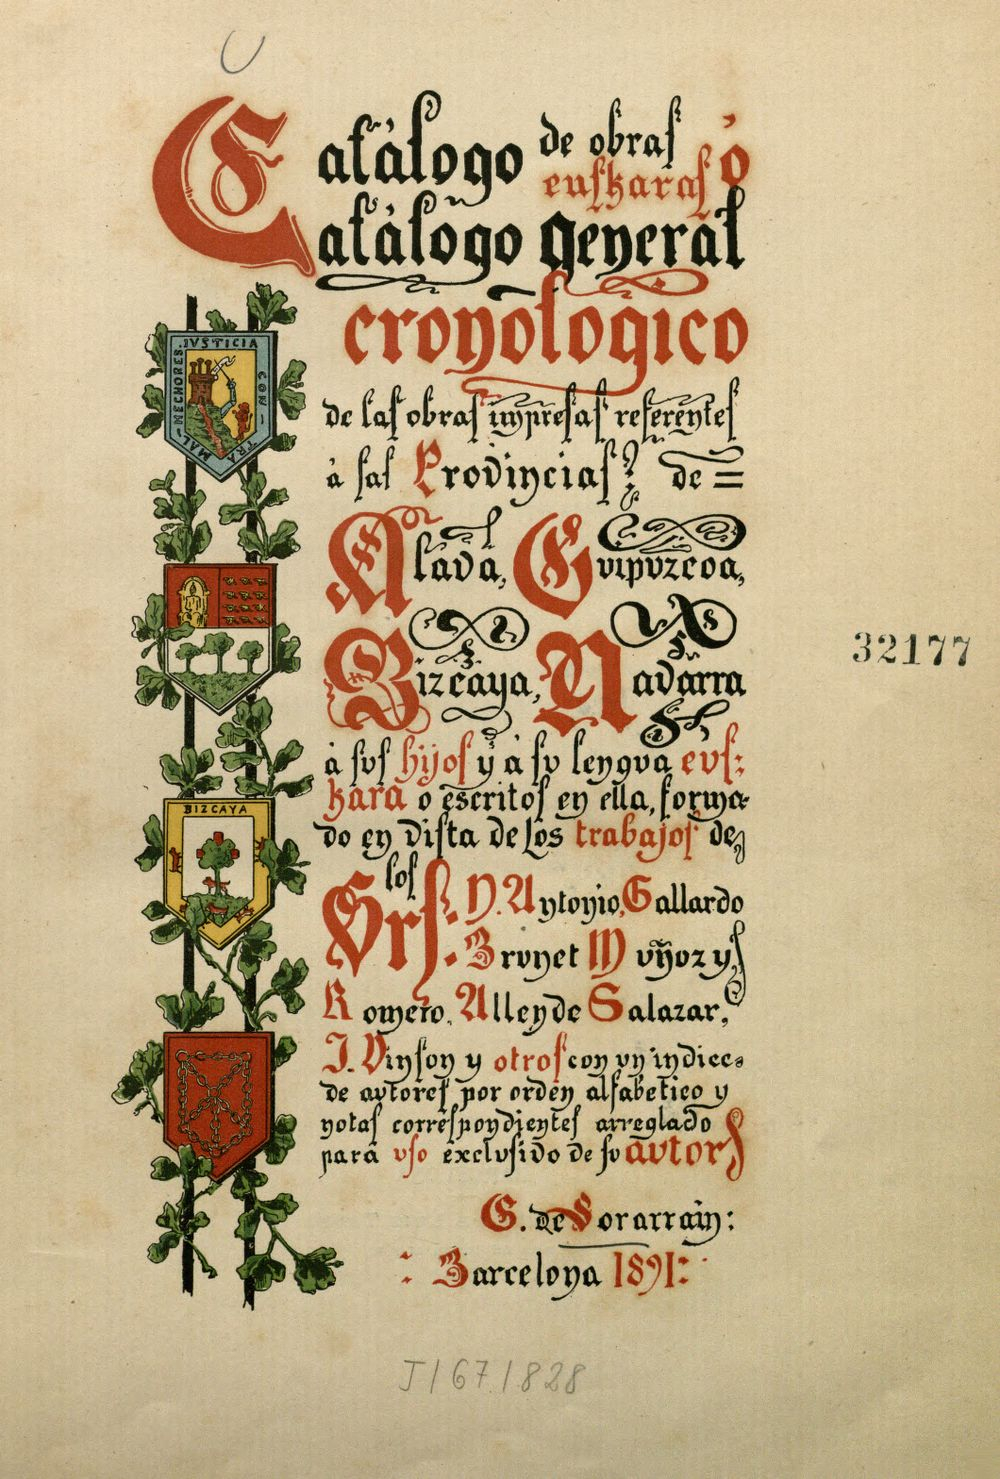 Catálogo de obras
euskaras ó
Catálogo general
cronologico
de las obras impresas referentes
á las Provincias de =
Alava, Guipuzcoa,
Bizcaya, Navarra
á sus hijos y á su lengua eus-
kara o escritos en ella, forma-
do en vista de los trabajos de
los
Srs. D. Antonio, Gallardo
Brunet Muñoz y
Romero, Allende Salazar,
J. Vinson y otros con un indice
de autores por orden alfabetico y
notas correspondientes arreglado
para uso exclusivo de su autor
G. de Sorarrain:
: Barcelona 1891:
JUSTICIA CONTRA MALHECHORES
BIZCAYA
32177
J/67/828